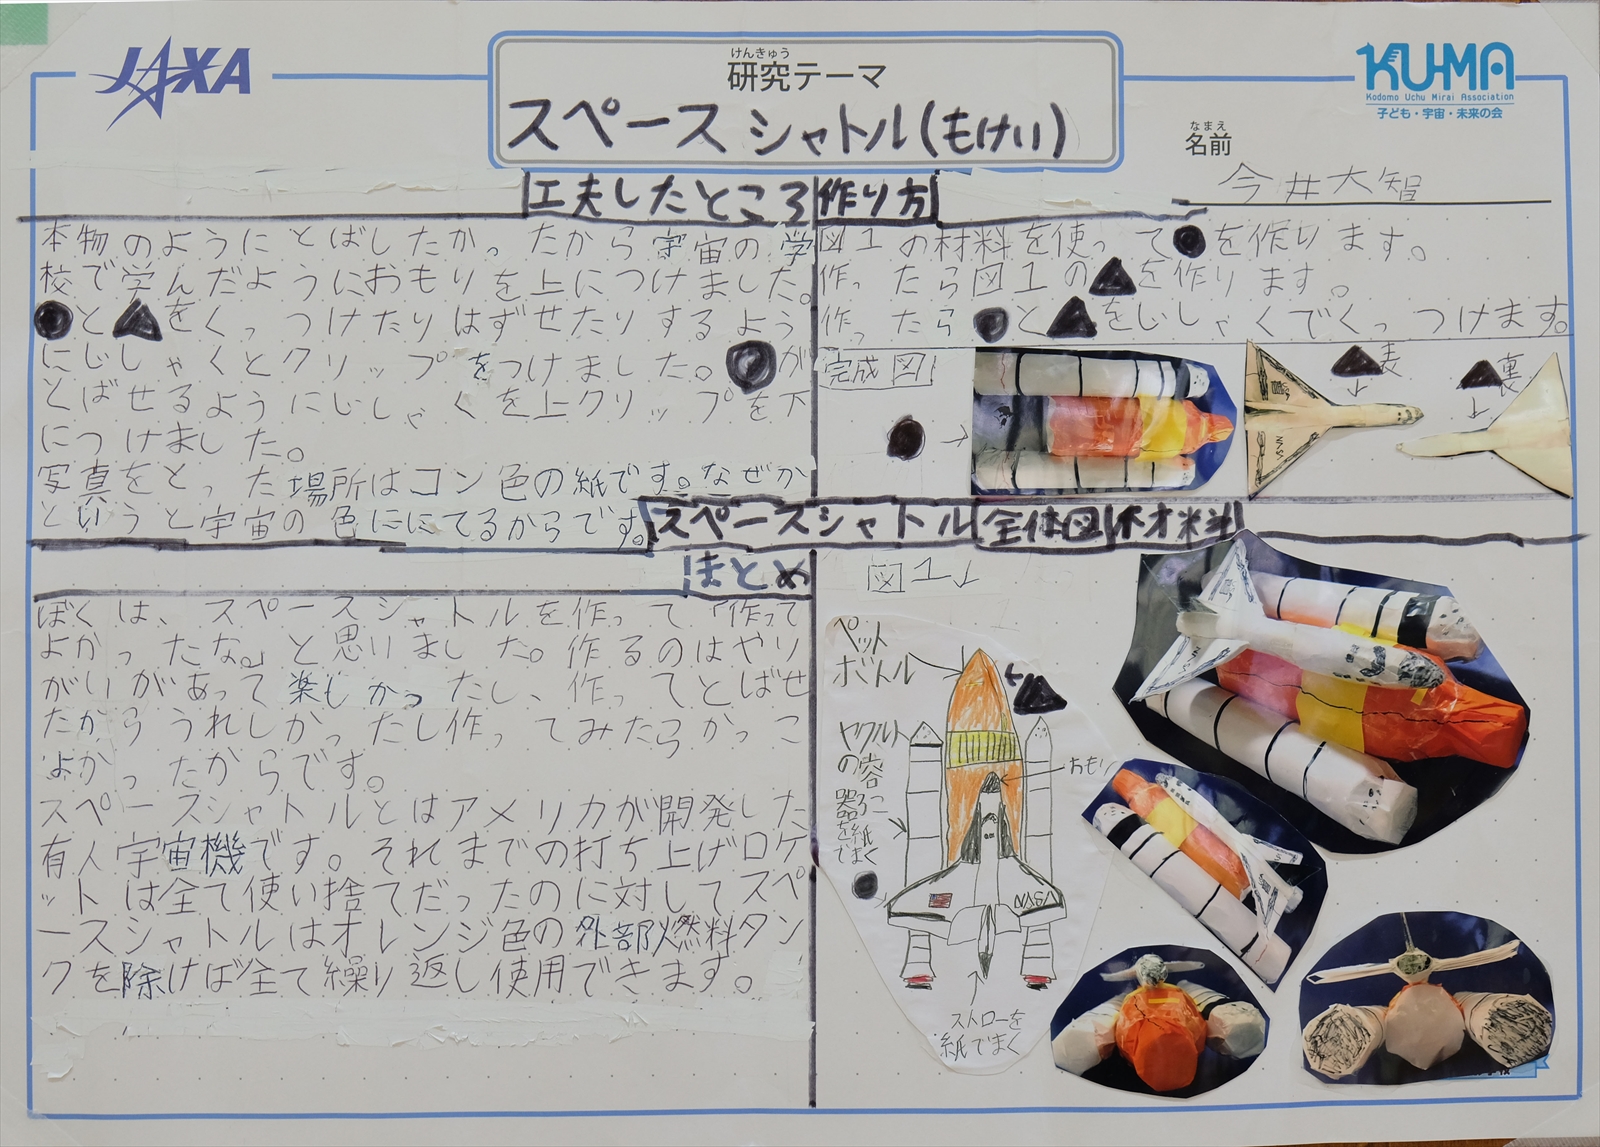 JAXA
けんきゅう
研究テーマ
スペースシャトル(もけい)
KU-MA
Kodomo Uchu Mirai Association
子ども・宇宙・未来の会
なまえ
名前
今井大智
工夫したところ
本物のようにとばしたかったから宇宙の学
校で学んだようにおもりを上につけました。
●と▲をくっつけたりはずせたりするよう
にじしゃくとクリップをつけました。●が
とばせるようにじしゃくを上クリップを下
につけました。
写真をとった場所はコン色の紙です。なぜか
というと宇宙の色ににてるからです。
作り方
図1の材料を使って●を作ります。
作ったら図1の▲を作ります。
作ったら●と▲をじしゃくでくっつけます。
完成図
●→
▲表
↓
▲裏
↓
NASA
スペースシャトル全体図材料
まとめ
ぼくは、スペースシャトルを作って「作って
よかったな。」と思いました。作るのはやり
がいがあって楽しかったし、作ってとばせ
たからうれしかったし作ってみたらかっこ
よかったからです。
スペースシャトルとはアメリカが開発した
有人宇宙機です。それまでの打ち上げロケ
ットは全て使い捨てだったのに対してスペ
ースシャトルはオレンジ色の外部燃料タン
クを除けば全て繰り返し使用できます。
図1↓
ペット
ボトル
▲
ヤクルト
の容
器を
紙でまく
●
おもり
NASA
ストローを
紙でまく